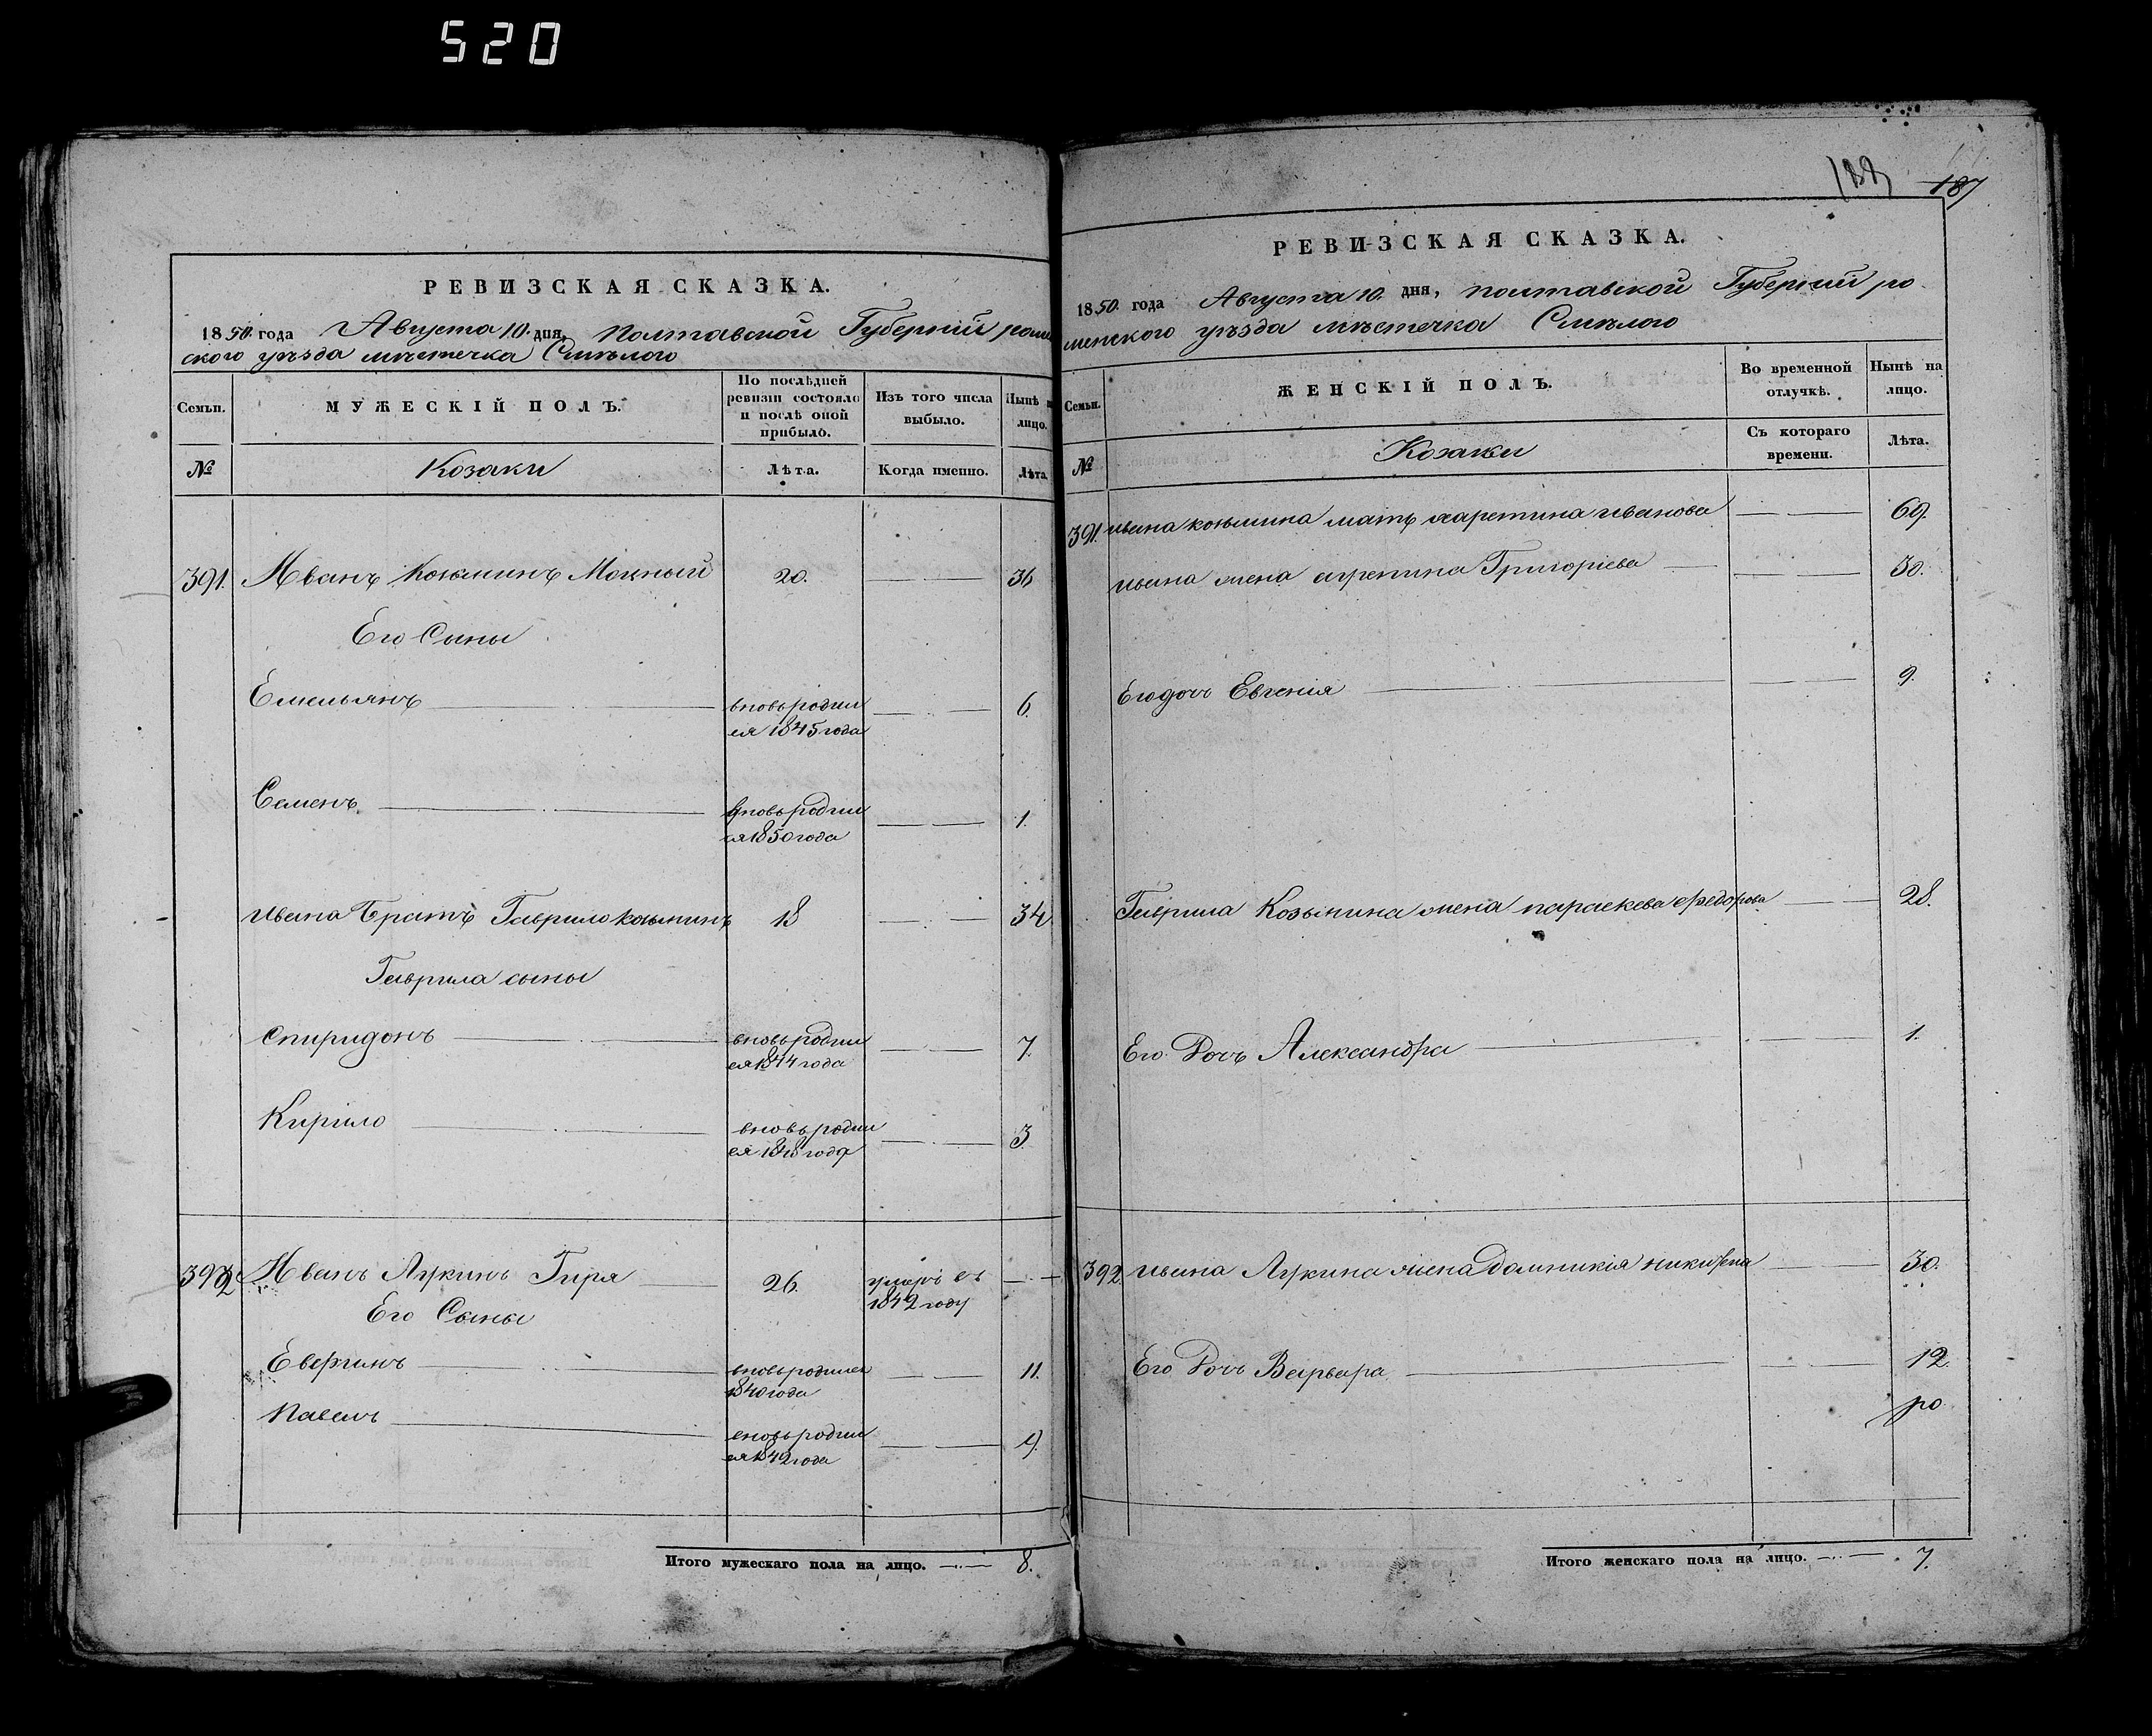 520
РЕВИЗСКАЯ СКАЗКА.
1850. года Августа 10. дня, полтавской Губернiй ромен
ского уѣзда мѣстечка Смѣлого
Семьи.
МУЖЕСКІЙ ПОЛЪ.
По послѣдней
ревизіи состояло
и послѣ оной
прибыло.
Изъ того числа
выбыло.
Нынѣ на
лицо.
№
Козаки
Лѣта.
Когда именно.
Лѣта.
391. Иванъ Козьминъ Мощный 20. 36
Его Сыны
Емельянъ вновь родил 6.
ся 1845 года
Семенъ вновь родил 1.
ся 1850 года
Ивана братъ Гаврило Козьминъ 18 34
Гаврила сыны
Спиридонъ вновь родил 7.
ся 1844 года
Кирило вновь родил 3.
ся 1848 года
392 Иванъ Лукинъ Гиря 26. умеръ въ
1842 году
Его Сыны
вновь родился 11.
1840 года
Павелъ вновь родил 9.
ся 1842 года
Итого мужескаго пола на лицо. 8.
188 187
РЕВИЗСКАЯ СКАЗКА.
1850. года Августа 10. дня, полтавской Губернiй ро-
менского уѣзда мѣстечка Смѣлого
Семьи.
ЖЕНСКІЙ ПОЛЪ.
Во временной
отлучкѣ.
Нынѣ на
лицо.
№
Козаки
Съ котораго
времени.
Лѣта.
391. Ивана Козьмина мать Иванова 69.
Ивана жена агрепина Григоріева 30.
Его дочь Евгенія 9.
Гаврила Козьмина жена параскева Федорова 28.
Его Дочь Александра 1.
392 Ивана Лукина жена Домникія 30.
Его Дочь Варвара 12.
Итого женскаго пола на лицо. 7.